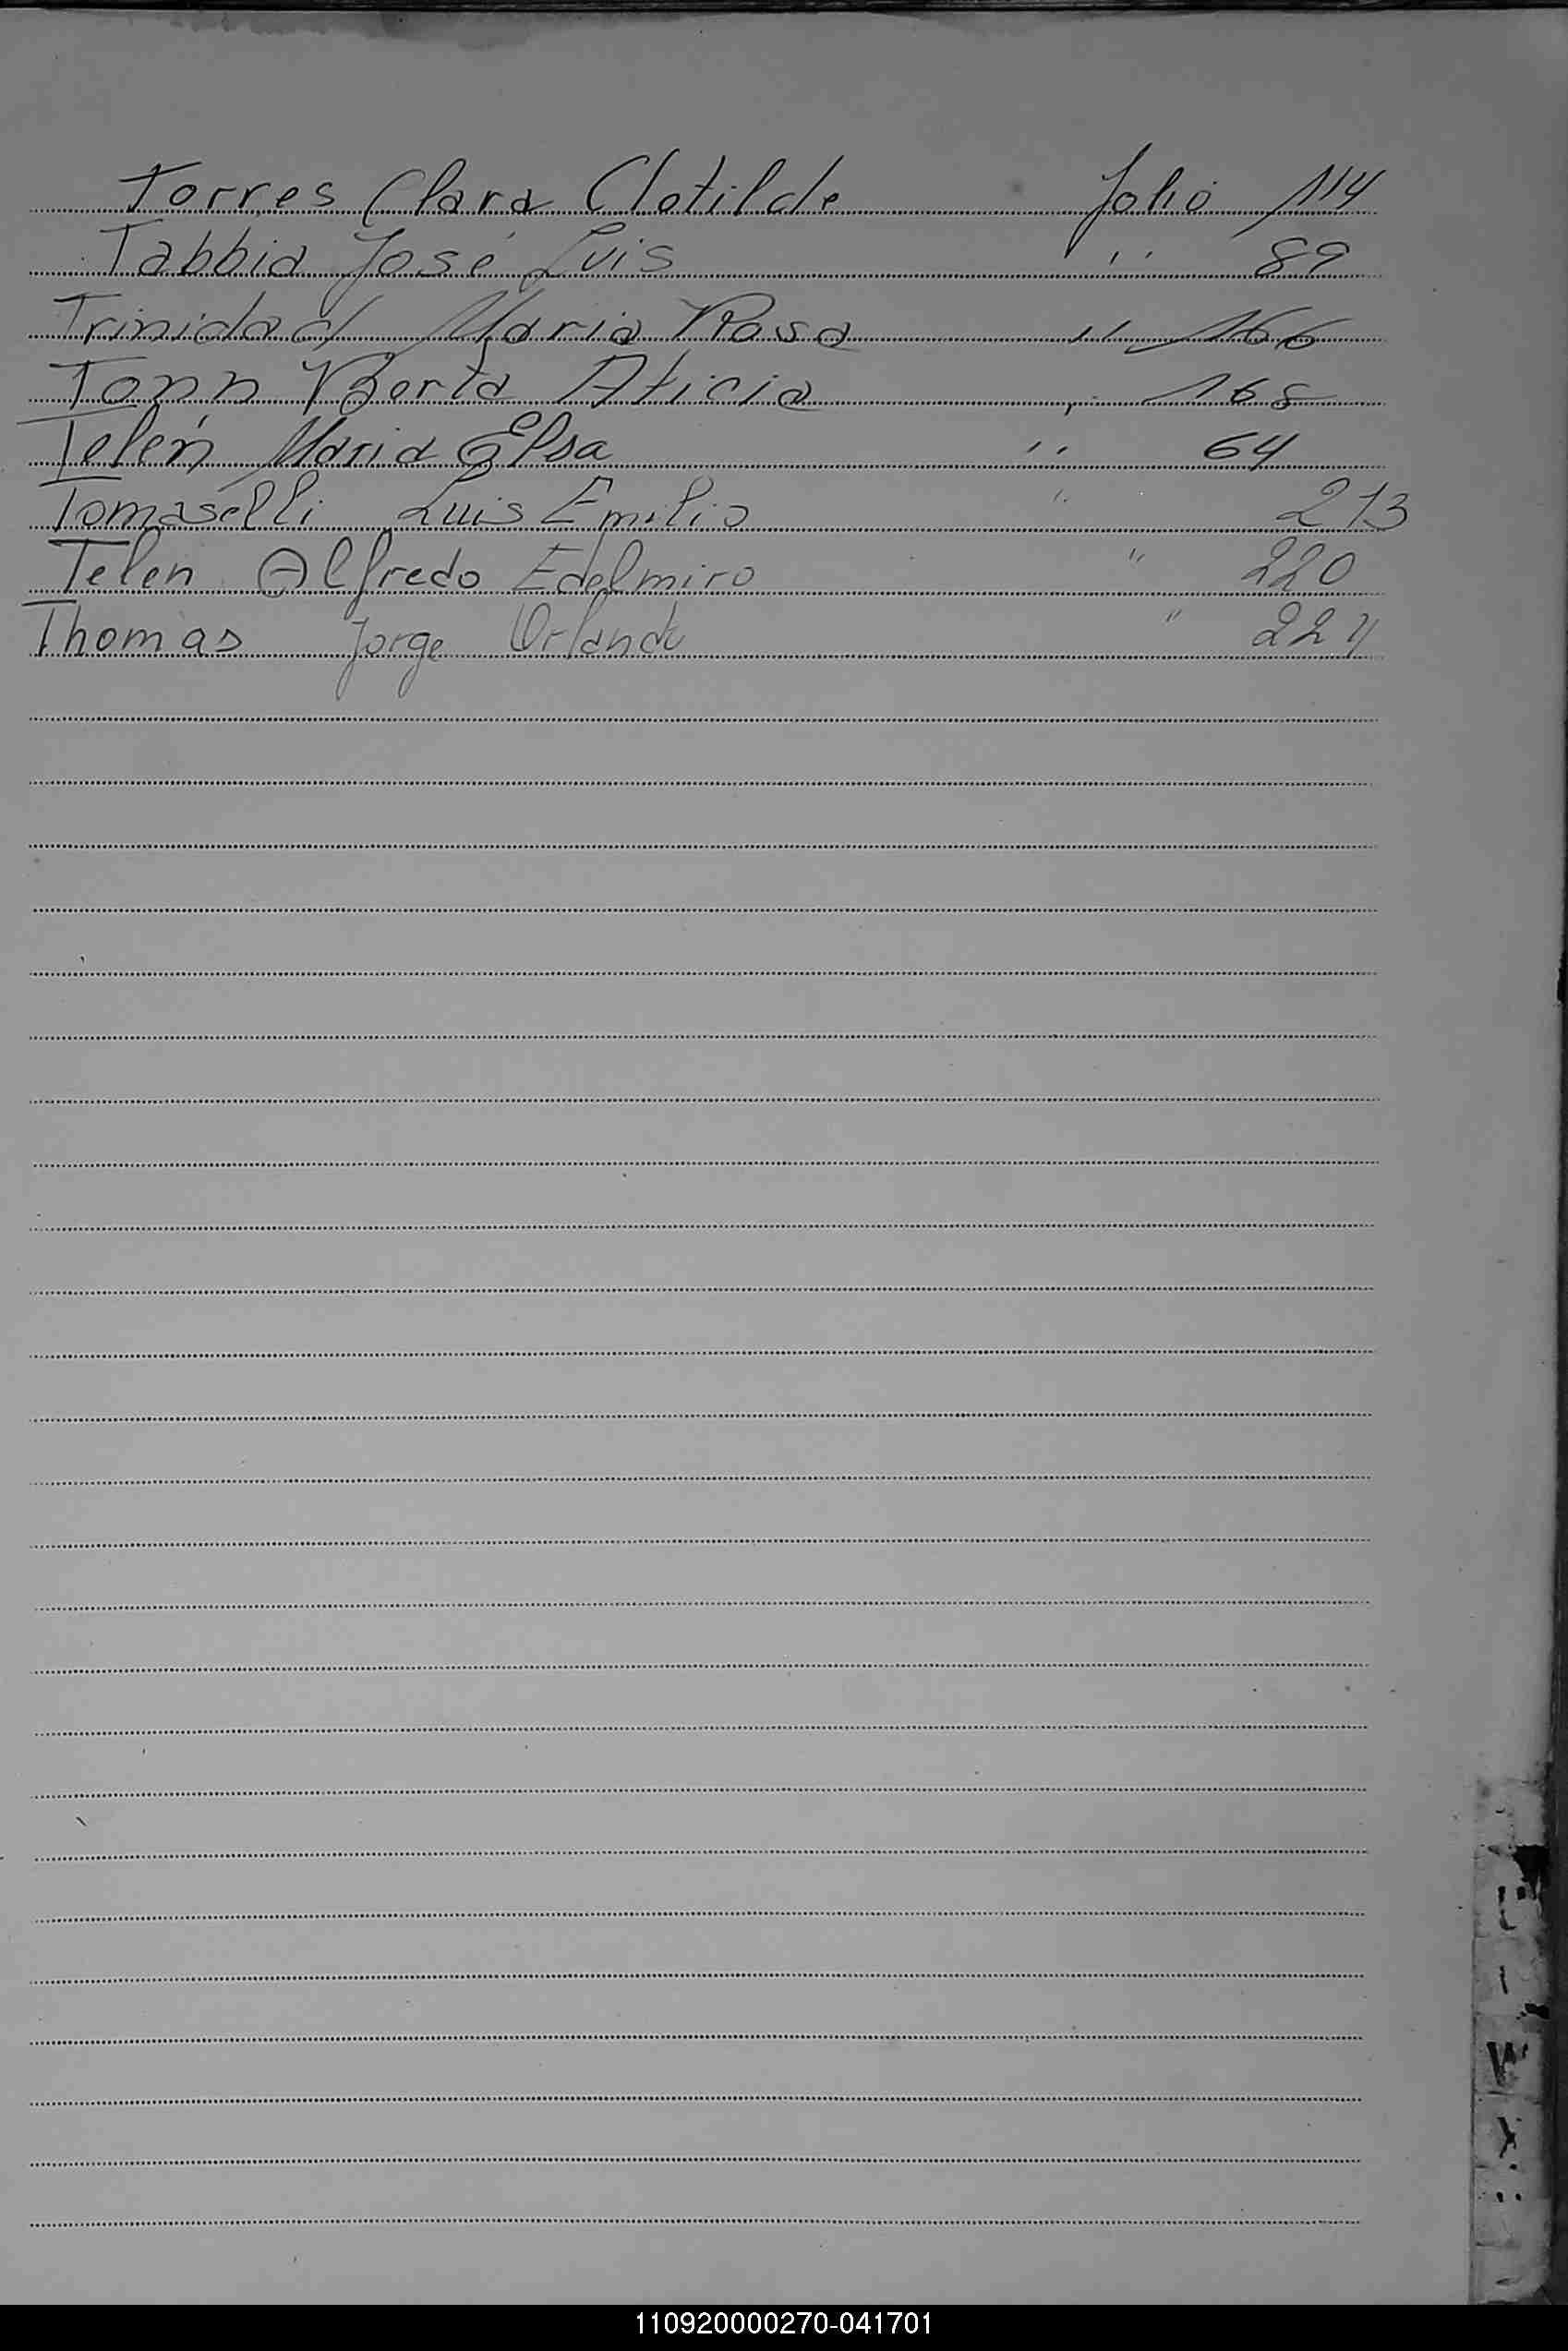 Torres Clara Clotilde Folio 114
Tabbia José Luis " 89
Trinidad Maria Rosa " 166
Tonn Berta Aticia " 168
Telen Maria Elsa " 64
Tomaselli Luis Emilio " 213
Telen Alfredo Edelmiro " 220
Thomas Jorge Orlando " 224
W
110920000270-041701